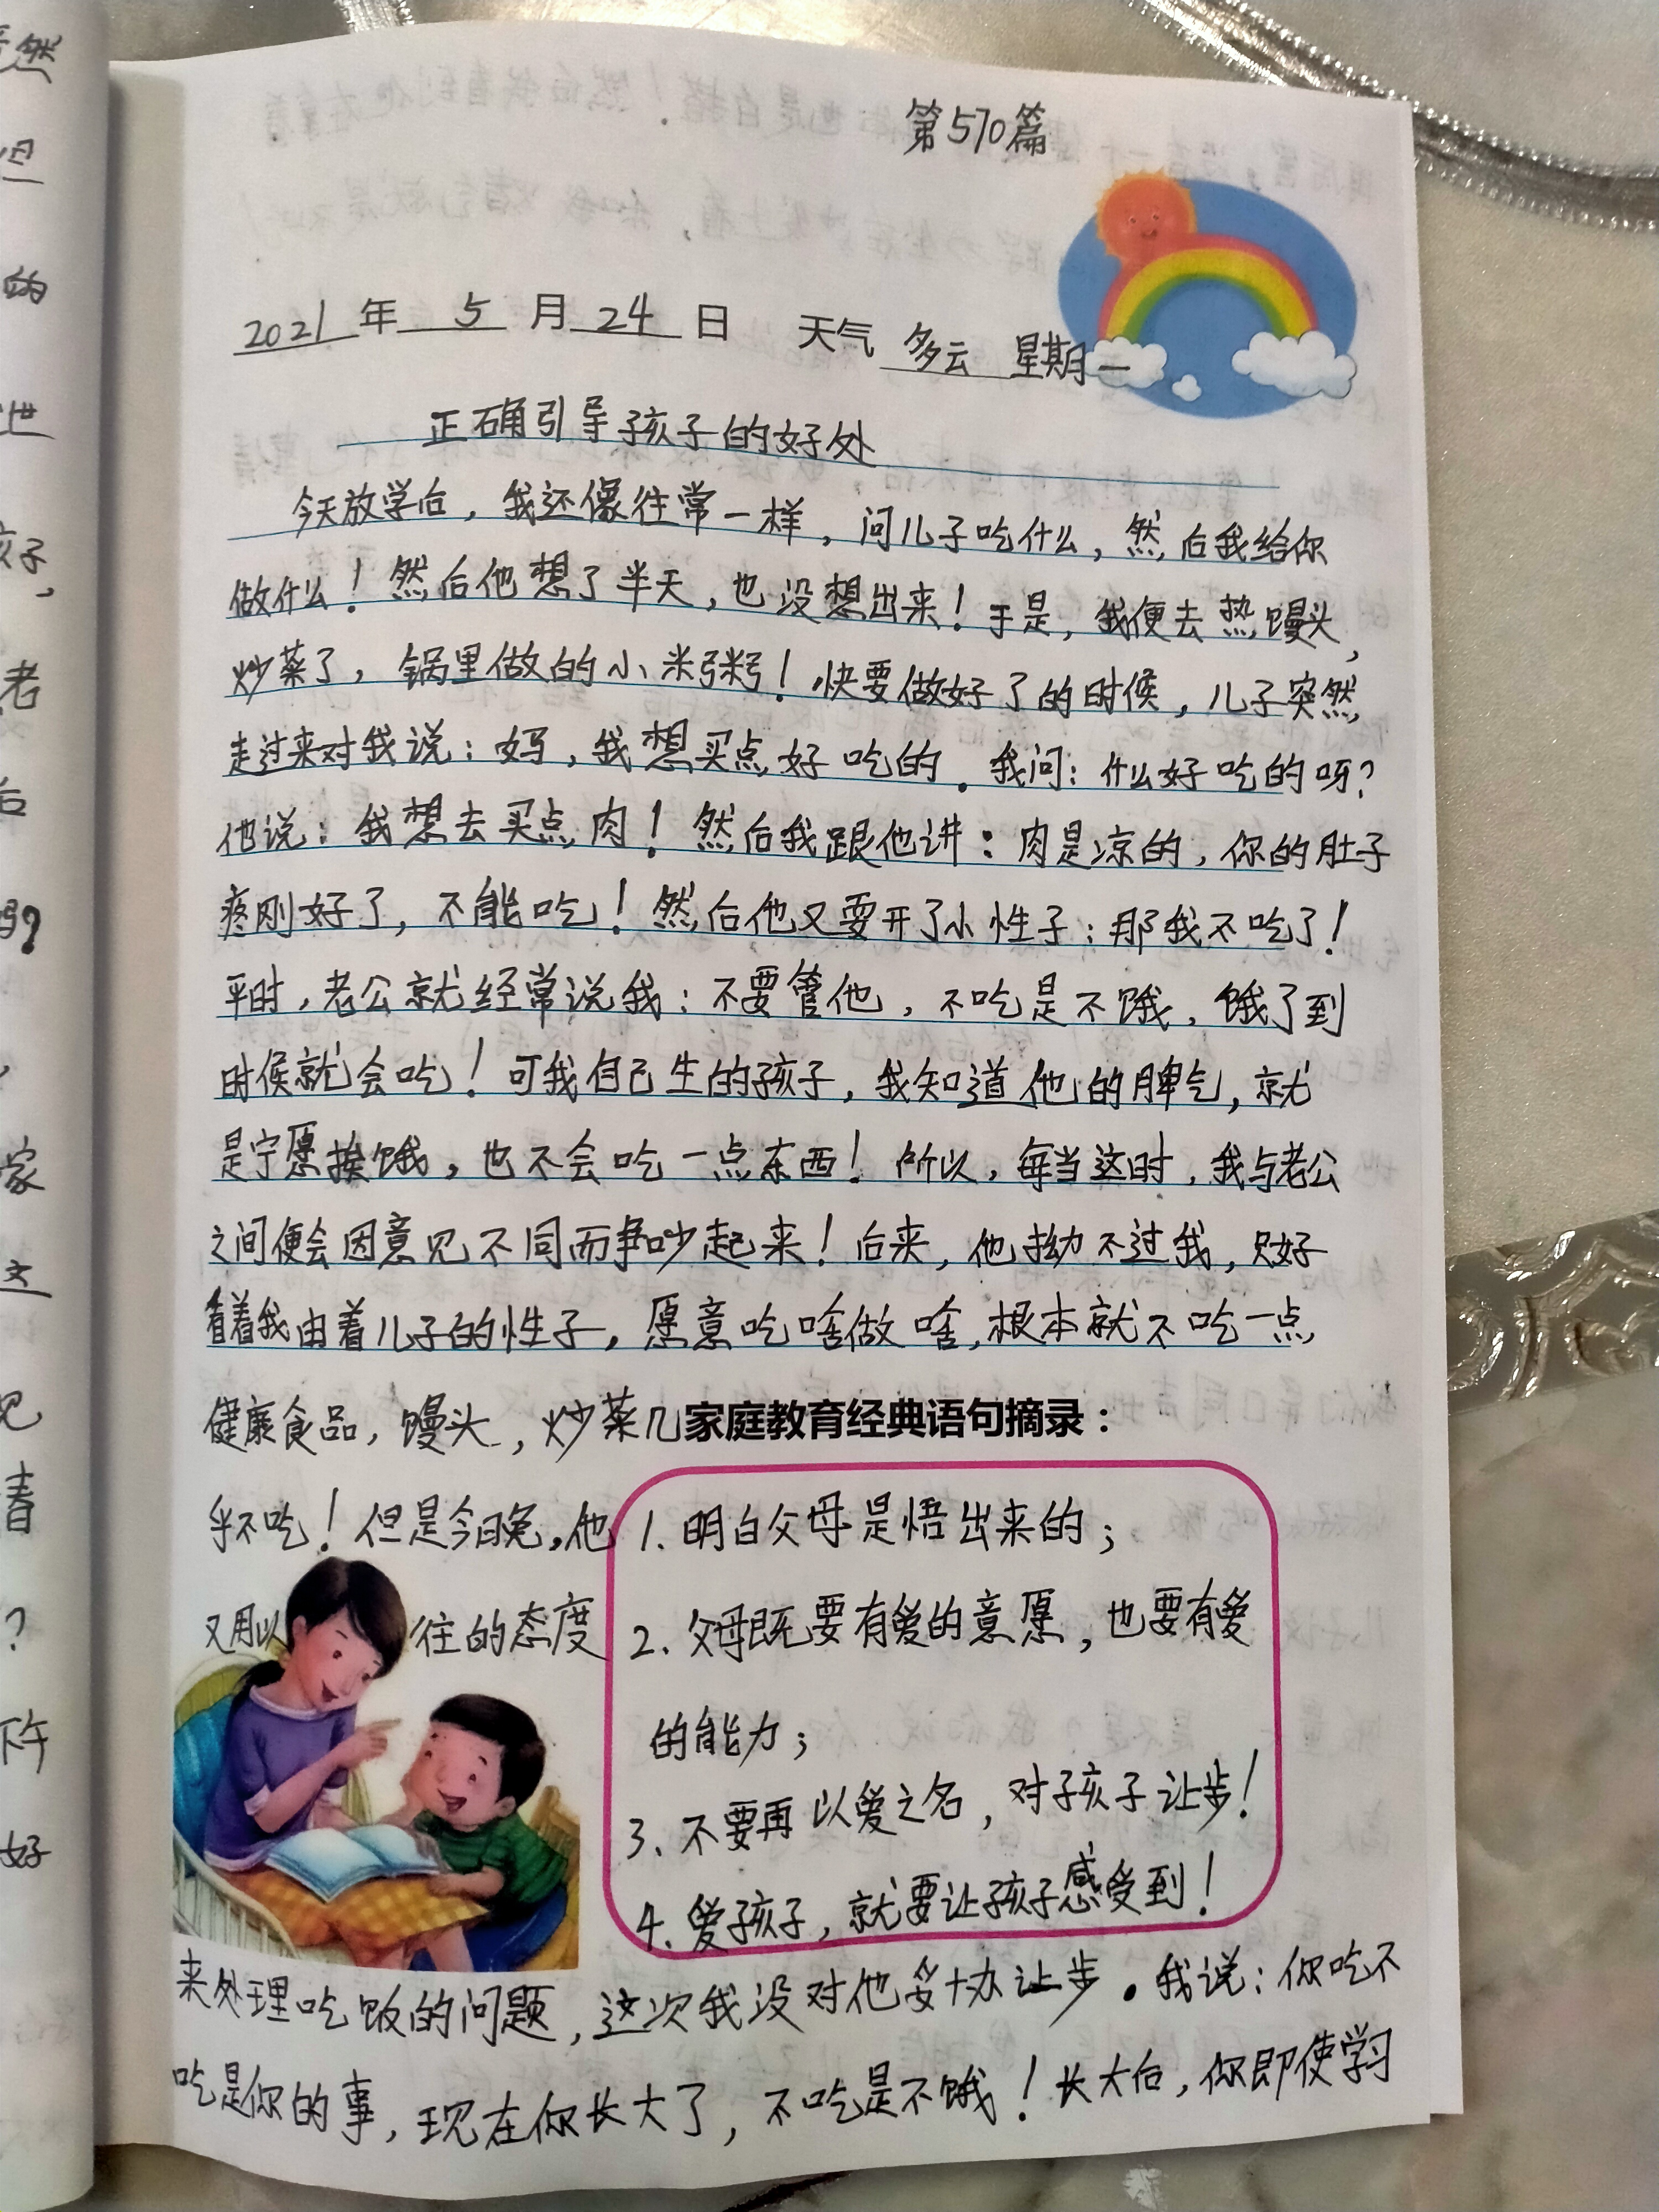 第570篇
2021年 5 月 24 日 天气 多云 星期一
正确引导孩子的好处
今天放学后，我还像往常一样，问儿子吃什么，然后我给你
做什么！然后他想了半天，也没想出来！于是，我便去热馒头，
炒菜了，锅里做的小米粥！快要做好了的时候，儿子突然
走过来对我说：妈，我想买点好吃的。我问：什么好吃的呀？
他说：我想去买点肉！然后我跟他讲：肉是凉的，你的肚子
疼刚好了，不能吃！然后他又耍开了小性子：那我不吃了！
平时，老公就经常说我：不要管他，不吃是不饿，饿了到
时候就会吃！可我自己生的孩子，我知道他的脾气，就
是宁愿挨饿，也不会吃一点东西！所以，每当这时，我与老公
之间便会因意见不同而争吵起来！后来，他拗不过我，只好
看着我由着儿子的性子，愿意吃啥做啥，根本就不吃一点
健康食品，馒头，炒菜几
乎不吃！但是今晚，他
又用以往的态度
家庭教育经典语句摘录：
1.明白父母是悟出来的；
2.父母既要有爱的意愿，也要有爱
的能力；
3.不要再以爱之名，对孩子让步！
4.爱孩子，就要让孩子感受到！
来处理吃饭的问题，这次我没对他妥协让步。我说：你吃不
吃是你的事，现在你长大了，不吃是不饿！长大后，你即使学习
然
但
的
孩子，
老
后
吗？
家
这
见
看
？
下午
好